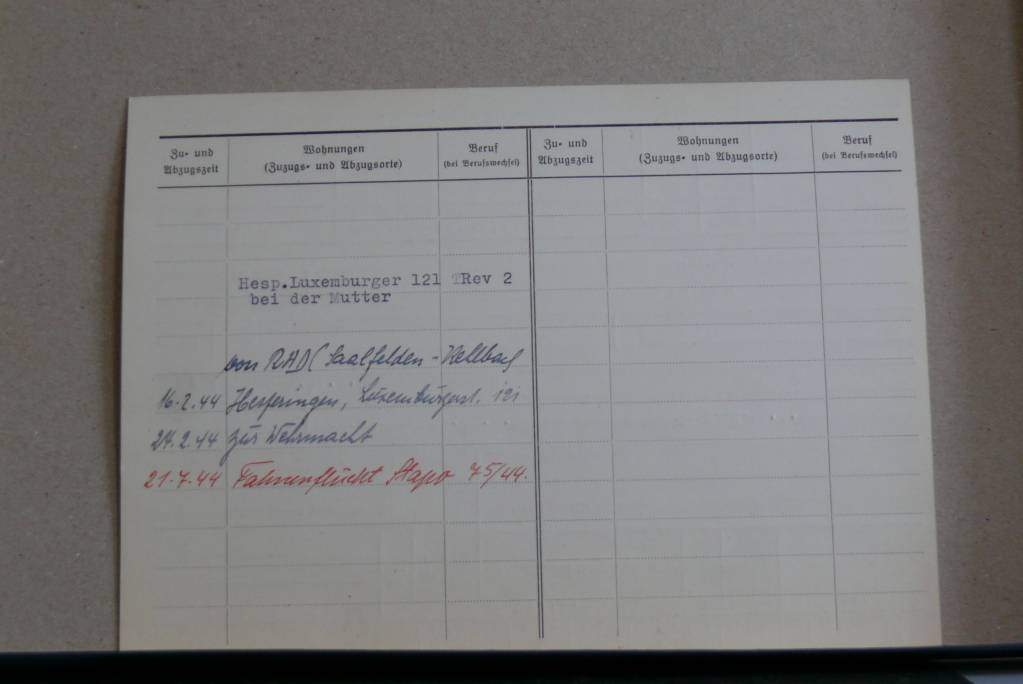 Zu- und Abzugszeit
Wohnungen (Zuzugs- und Abzugsorte)
Beruf (bei Berufswechsel)
Zu- und Abzugszeit
Wohnungen (Zuzugs- und Abzugsorte)
Beruf (bei Berufswechsel)
Hesp.Luxemburger 121 TRev 2
bei der Mutter
von RAD ( Saalfelden -
16.2.44 Hesperingen, Luxemburgerst. 121
24.2.44 zur Wehrmacht
21.7.44 Fahnenflucht Stapo 75/44.